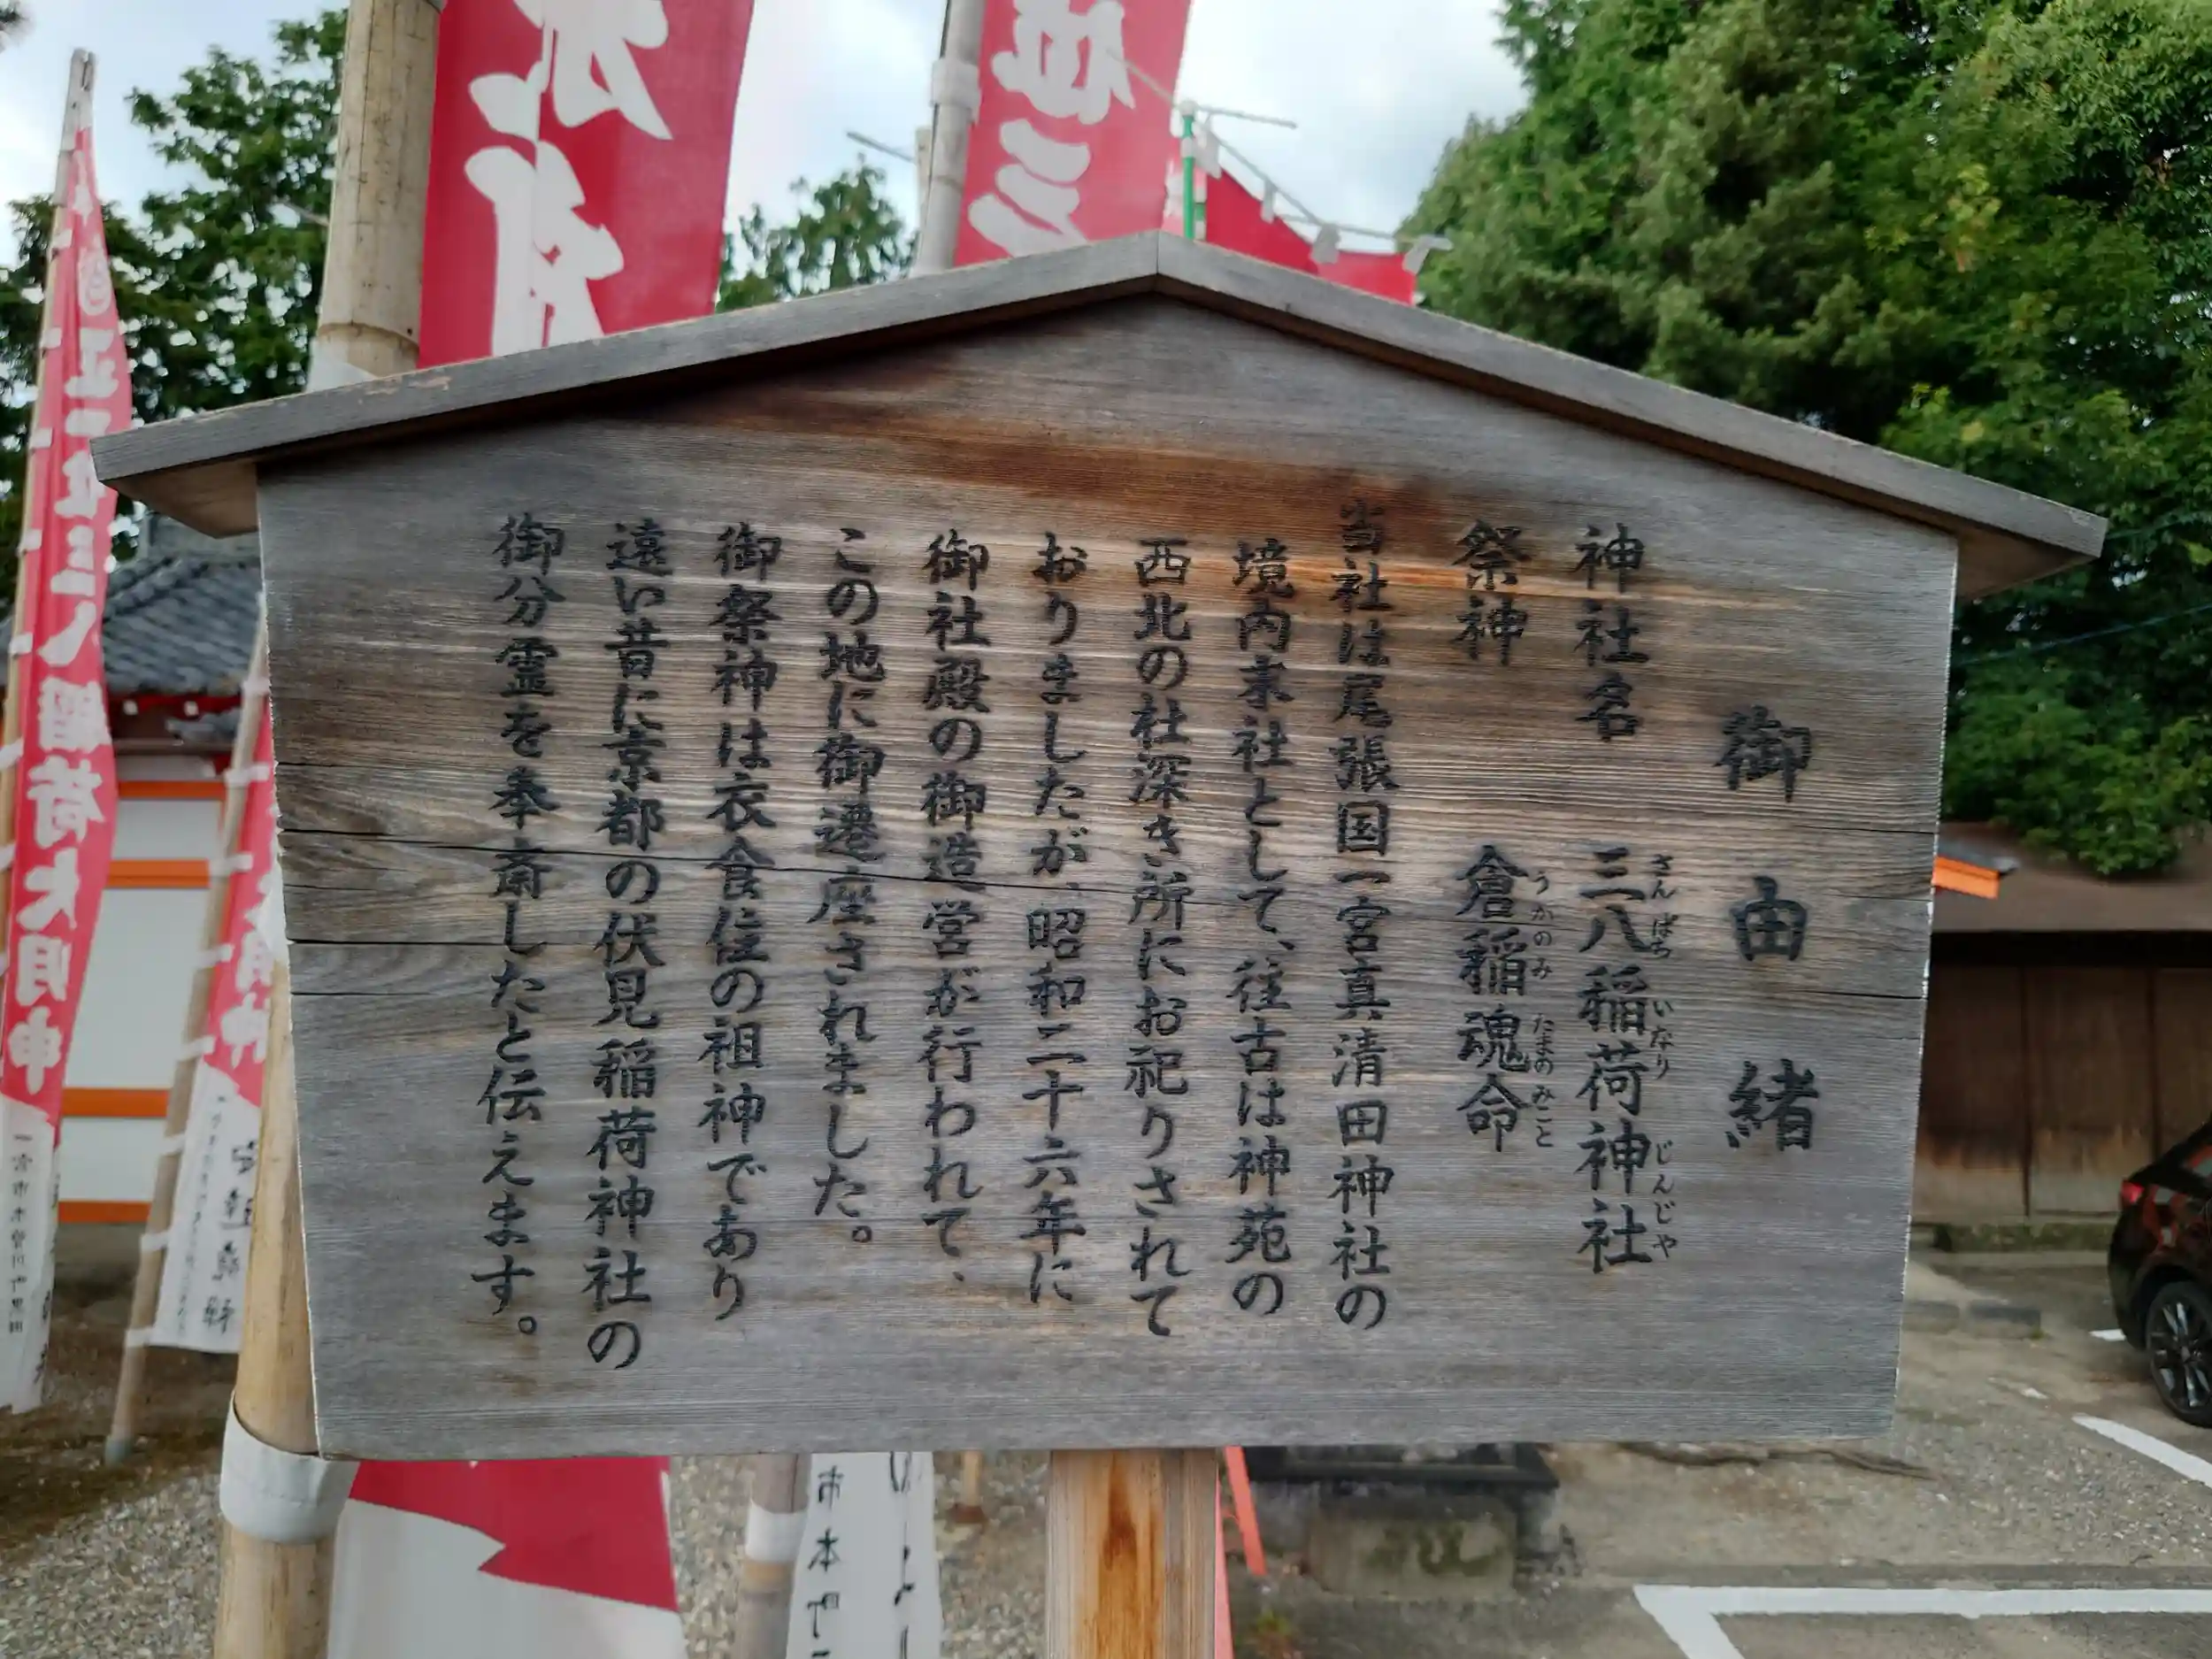 御由緒
神社名 三八稲荷神社
さんぱち いなり じんじや
祭神 倉稲魂命
うかのみ たまの みこと
当社は尾張国一宮真清田神社の
境内末社として、往古は神苑の
西北の社深き所にお祀りされて
おりましたが、昭和二十六年に
御社殿の御造営が行われて、
この地に御遷座されました。
御祭神は衣食住の祖神であり
遠い昔に京都の伏見稲荷神社の
御分霊を奉斎したと伝えます。
正一位三八稲荷大明神
位三
市本町